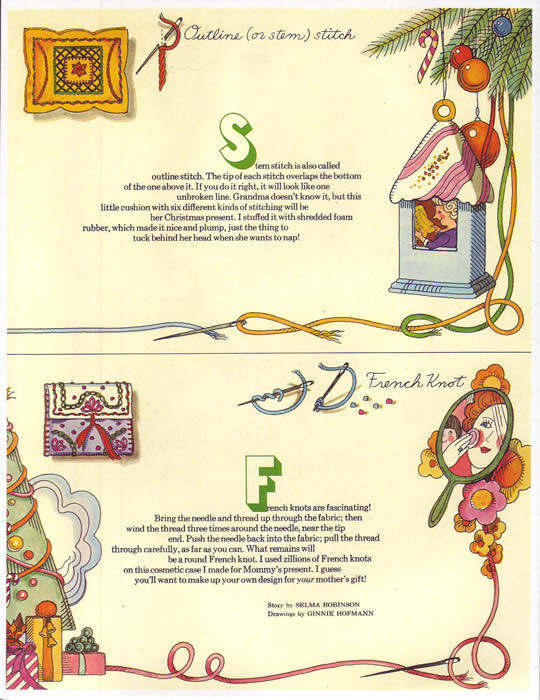 Outline (or stem) stitch
Stem stitch is also called
outline stitch. The tip of each stitch overlaps the bottom
of the one above it. If you do it right, it will look like one
unbroken line. Grandma doesn't know it, but this
little cushion with six different kinds of stitching will be
her Christmas present. I stuffed it with shredded foam
rubber, which made it nice and plump, just the thing to
tuck behind her head when she wants to nap!
French Knot
French knots are fascinating!
Bring the needle and thread up through the fabric; then
wind the thread three times around the needle, near the tip
end. Push the needle back into the fabric; pull the thread
through carefully, as far as you can. What remains will
be a round French knot. I used zillions of French knots
on this cosmetic case I made for Mommy's present. I guess
you'll want to make up your own design for your mother's gift!
Story by SELMA ROBINSON
Drawings by GINNIE HOFMANN